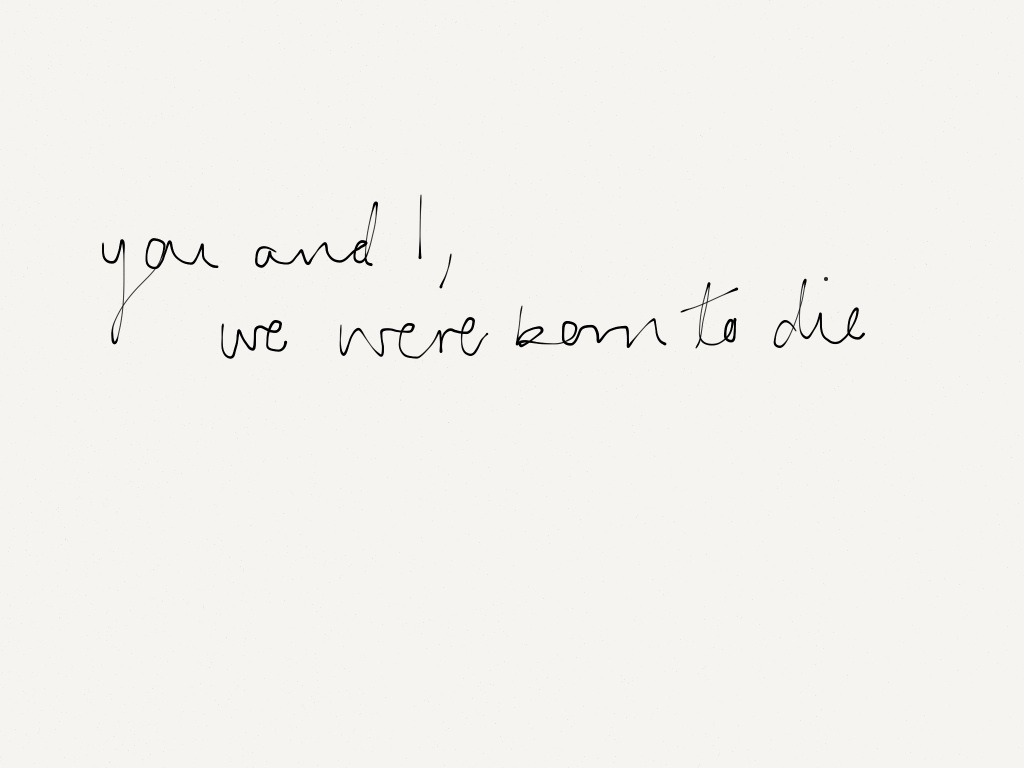 you and I,
we were born to die